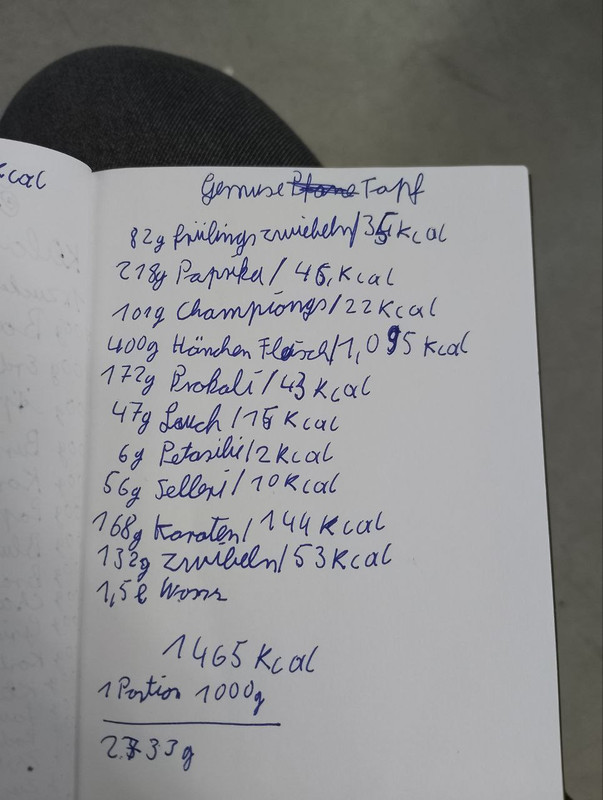 kcal
Gemuse Topf
82g frülingszwiebeln/35kcal
218g Paprika/45,Kcal
101g Championgs/22Kcal
400g Hänchen Fleisch/1,095 Kcal
172g Prokoli/43Kcal
47g Lauch/15 Kcal
6g Petasilie/2Kcal
56g Selleri/10Kcal
168g Karoten/144Kcal
132g Zwiebeln/53Kcal
1,5l Wasser
1465 Kcal
1 Portion 1000g
2333g